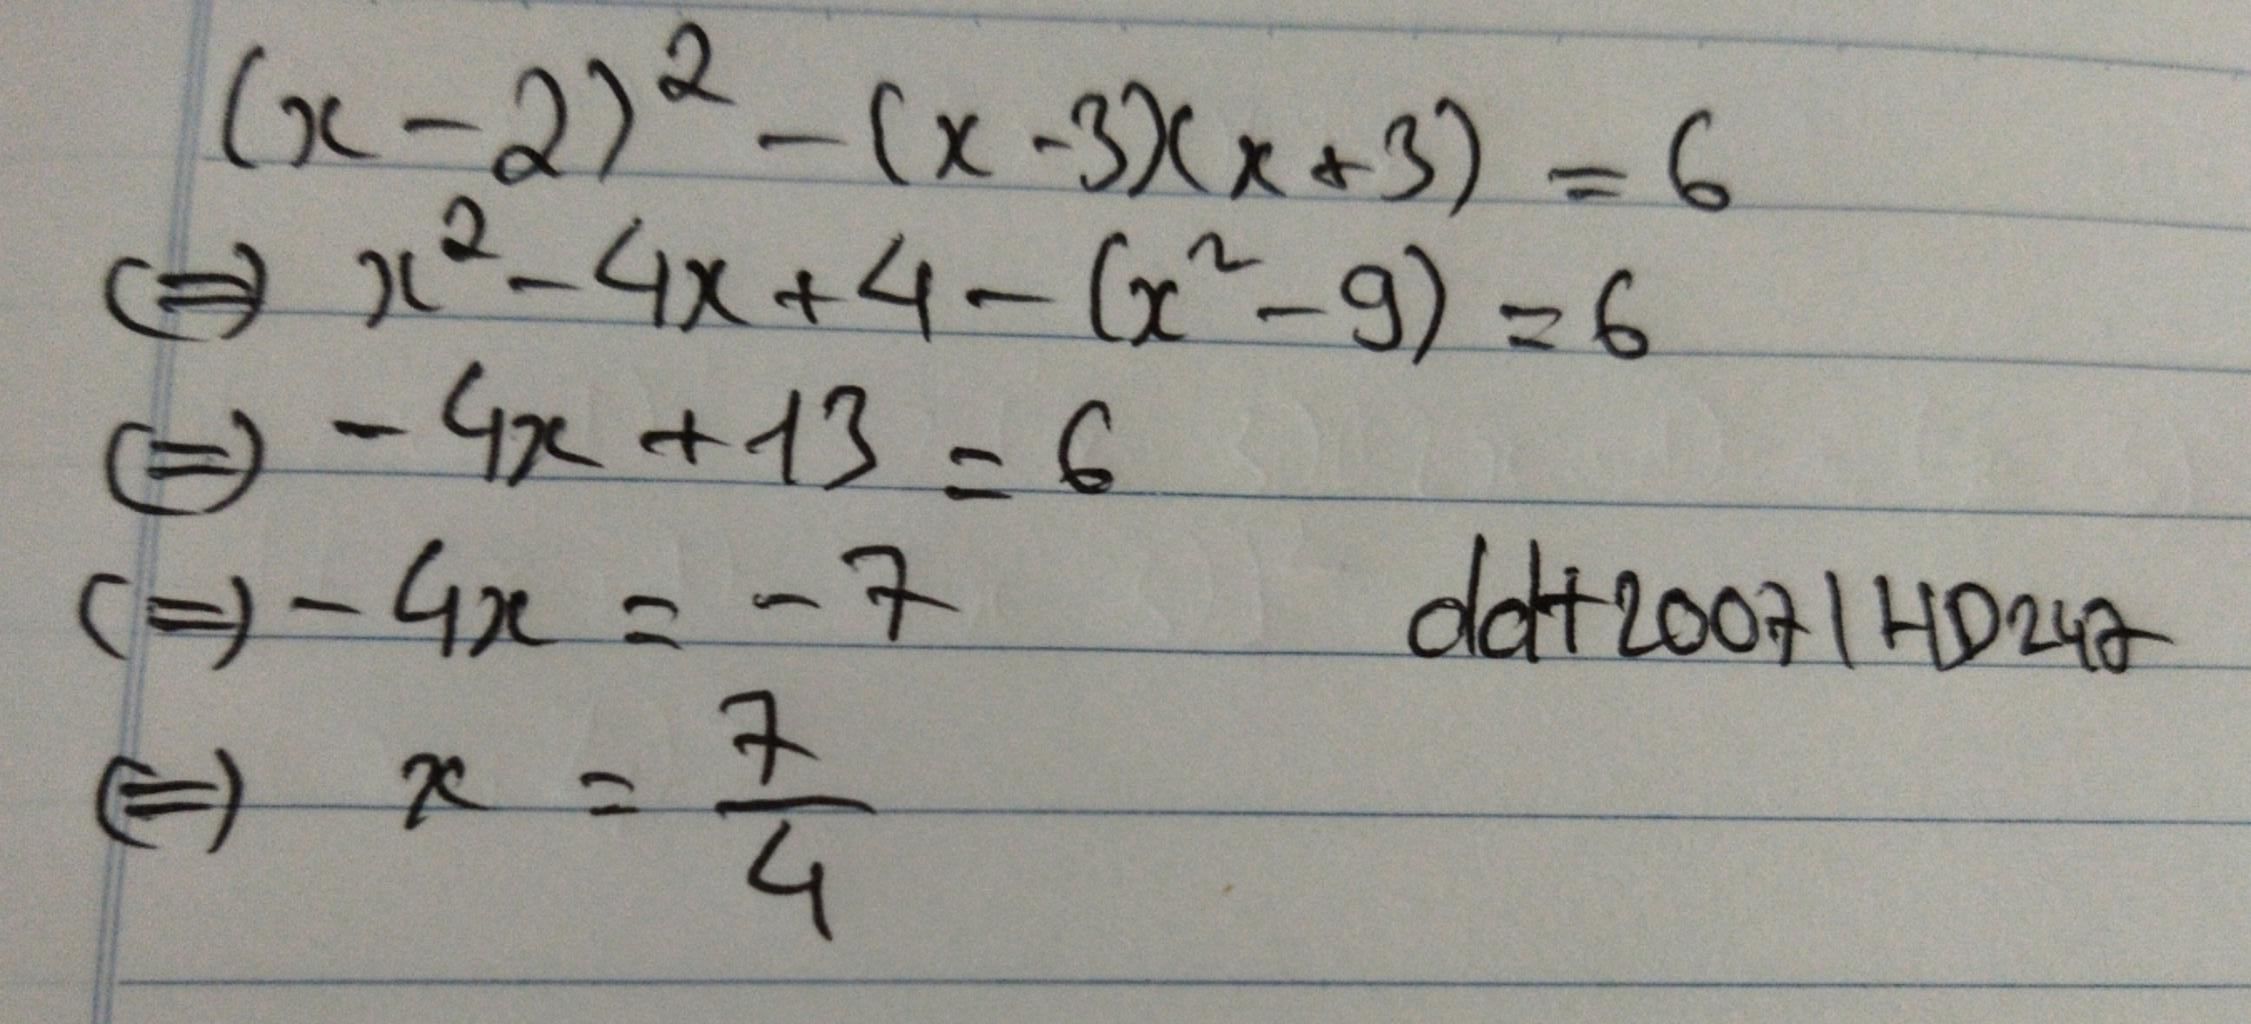 (x-2)² - (x-3)(x+3) = 6
(=) x² - 4x + 4 - (x² - 9) = 6
(=) - 4x + 13 = 6
(=) - 4x = - 7
ddt2007 | HD247
(=) x = 7/4